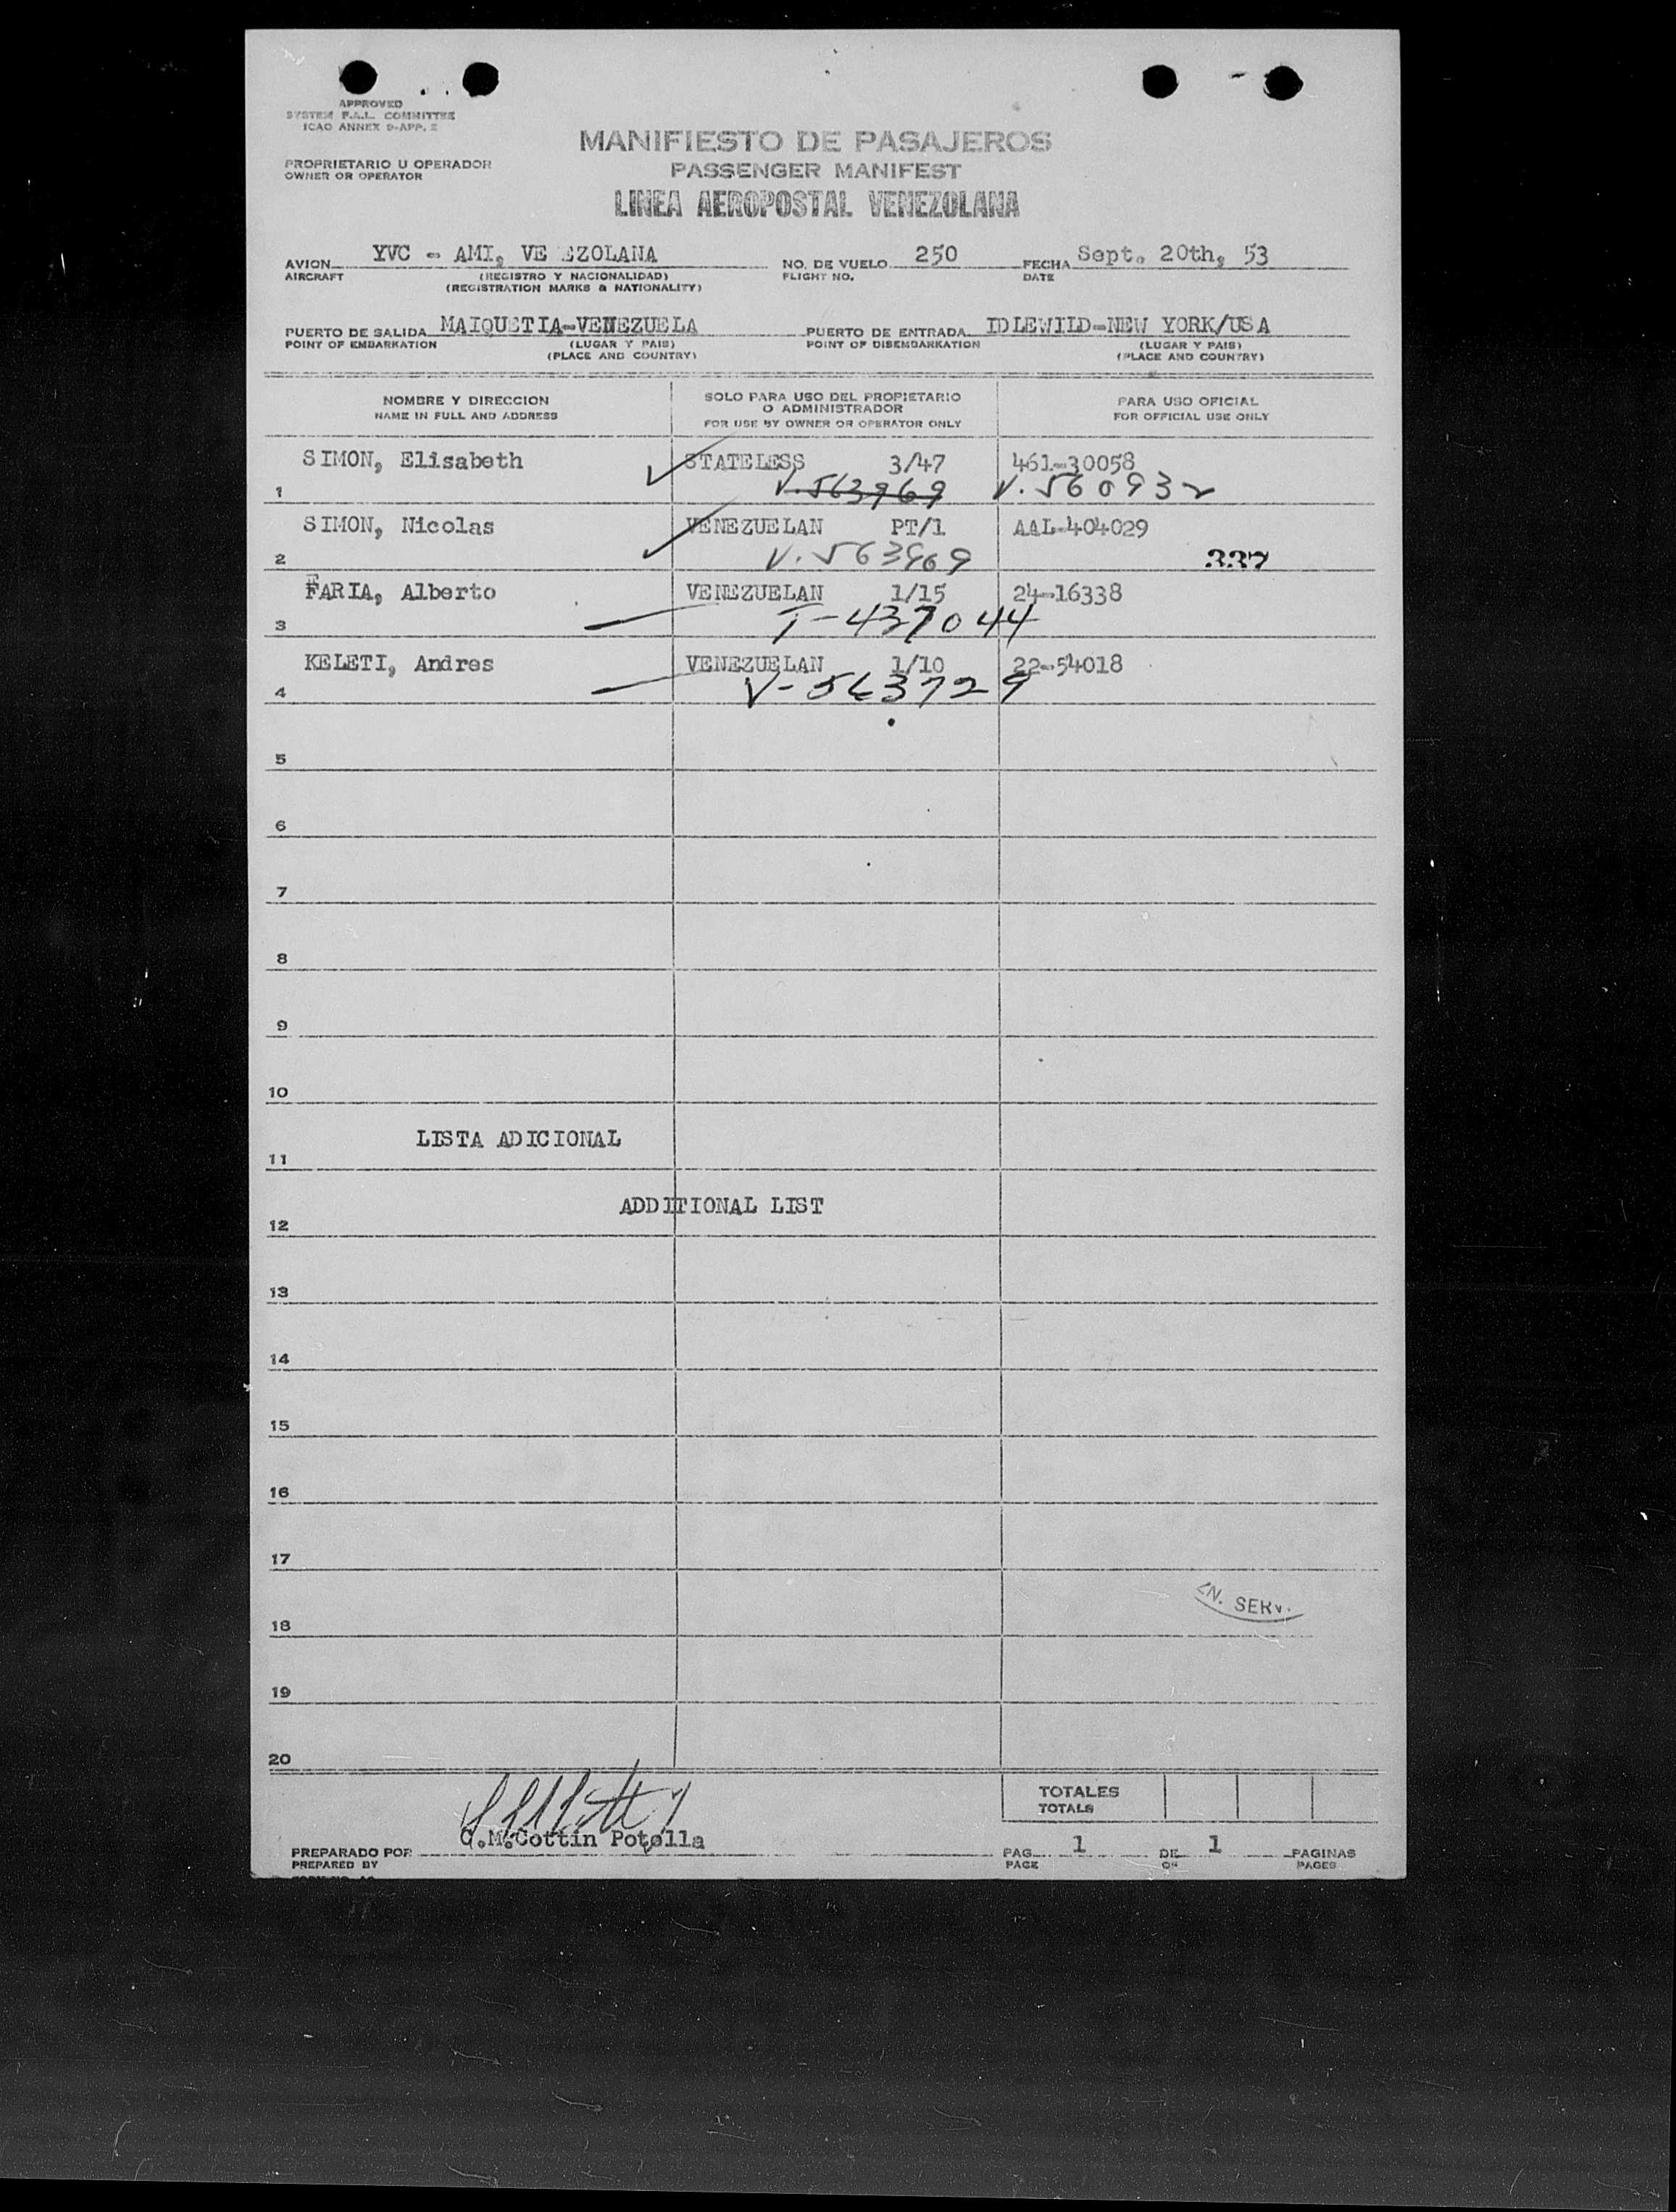 APPROVED
SYSTEM F.A.L. COMMITTEE
ICAO ANNEX 9-APP. 2
MANIFIESTO DE PASAJEROS
PASSENGER MANIFEST
LINEA AEROPOSTAL VENEZOLANA
PROPRIETARIO U OPERADOR
OWNER OR OPERATOR
AVION YVC - AMI, VE EZOLANA NO. DE VUELO 250 FECHA Sept. 20th, 53
AIRCRAFT (REGISTRO Y NACIONALIDAD) FLIGHT NO. DATE
(REGISTRATION MARKS & NATIONALITY)
PUERTO DE SALIDA MAIQUETIA-VENEZUELA PUERTO DE ENTRADA IDLEWILD-NEW YORK/USA
POINT OF EMBARKATION (LUGAR Y PAIS) POINT OF DISEMBARKATION (LUGAR Y PAIS)
(PLACE AND COUNTRY) (PLACE AND COUNTRY)
NOMBRE Y DIRECCION SOLO PARA USO DEL PROPIETARIO PARA USO OFICIAL
NAME IN FULL AND ADDRESS O ADMINISTRADOR FOR OFFICIAL USE ONLY
FOR USE BY OWNER OR OPERATOR ONLY
SIMON, Elisabeth STATELESS 3/47 461-30058
1 V. 563969 V. 560932
SIMON, Nicolas VENEZUELAN PT/1 AAL-404029
2 V. 563969 337
FARIA, Alberto VENEZUELAN 1/15 24-16338
3 T-437044
KELETI, Andres VENEZUELAN 1/10 22-54018
4 V-563729
5
6
7
8
9
10
LISTA ADICIONAL
11
ADDITIONAL LIST
12
13
14
15
16
17
SERV.
18
19
20
TOTALES
TOTALS
PREPARADO POR C.M.Cottin Potella PAG. 1 DE 1 PAGINAS
PREPARED BY PAGE OF PAGES